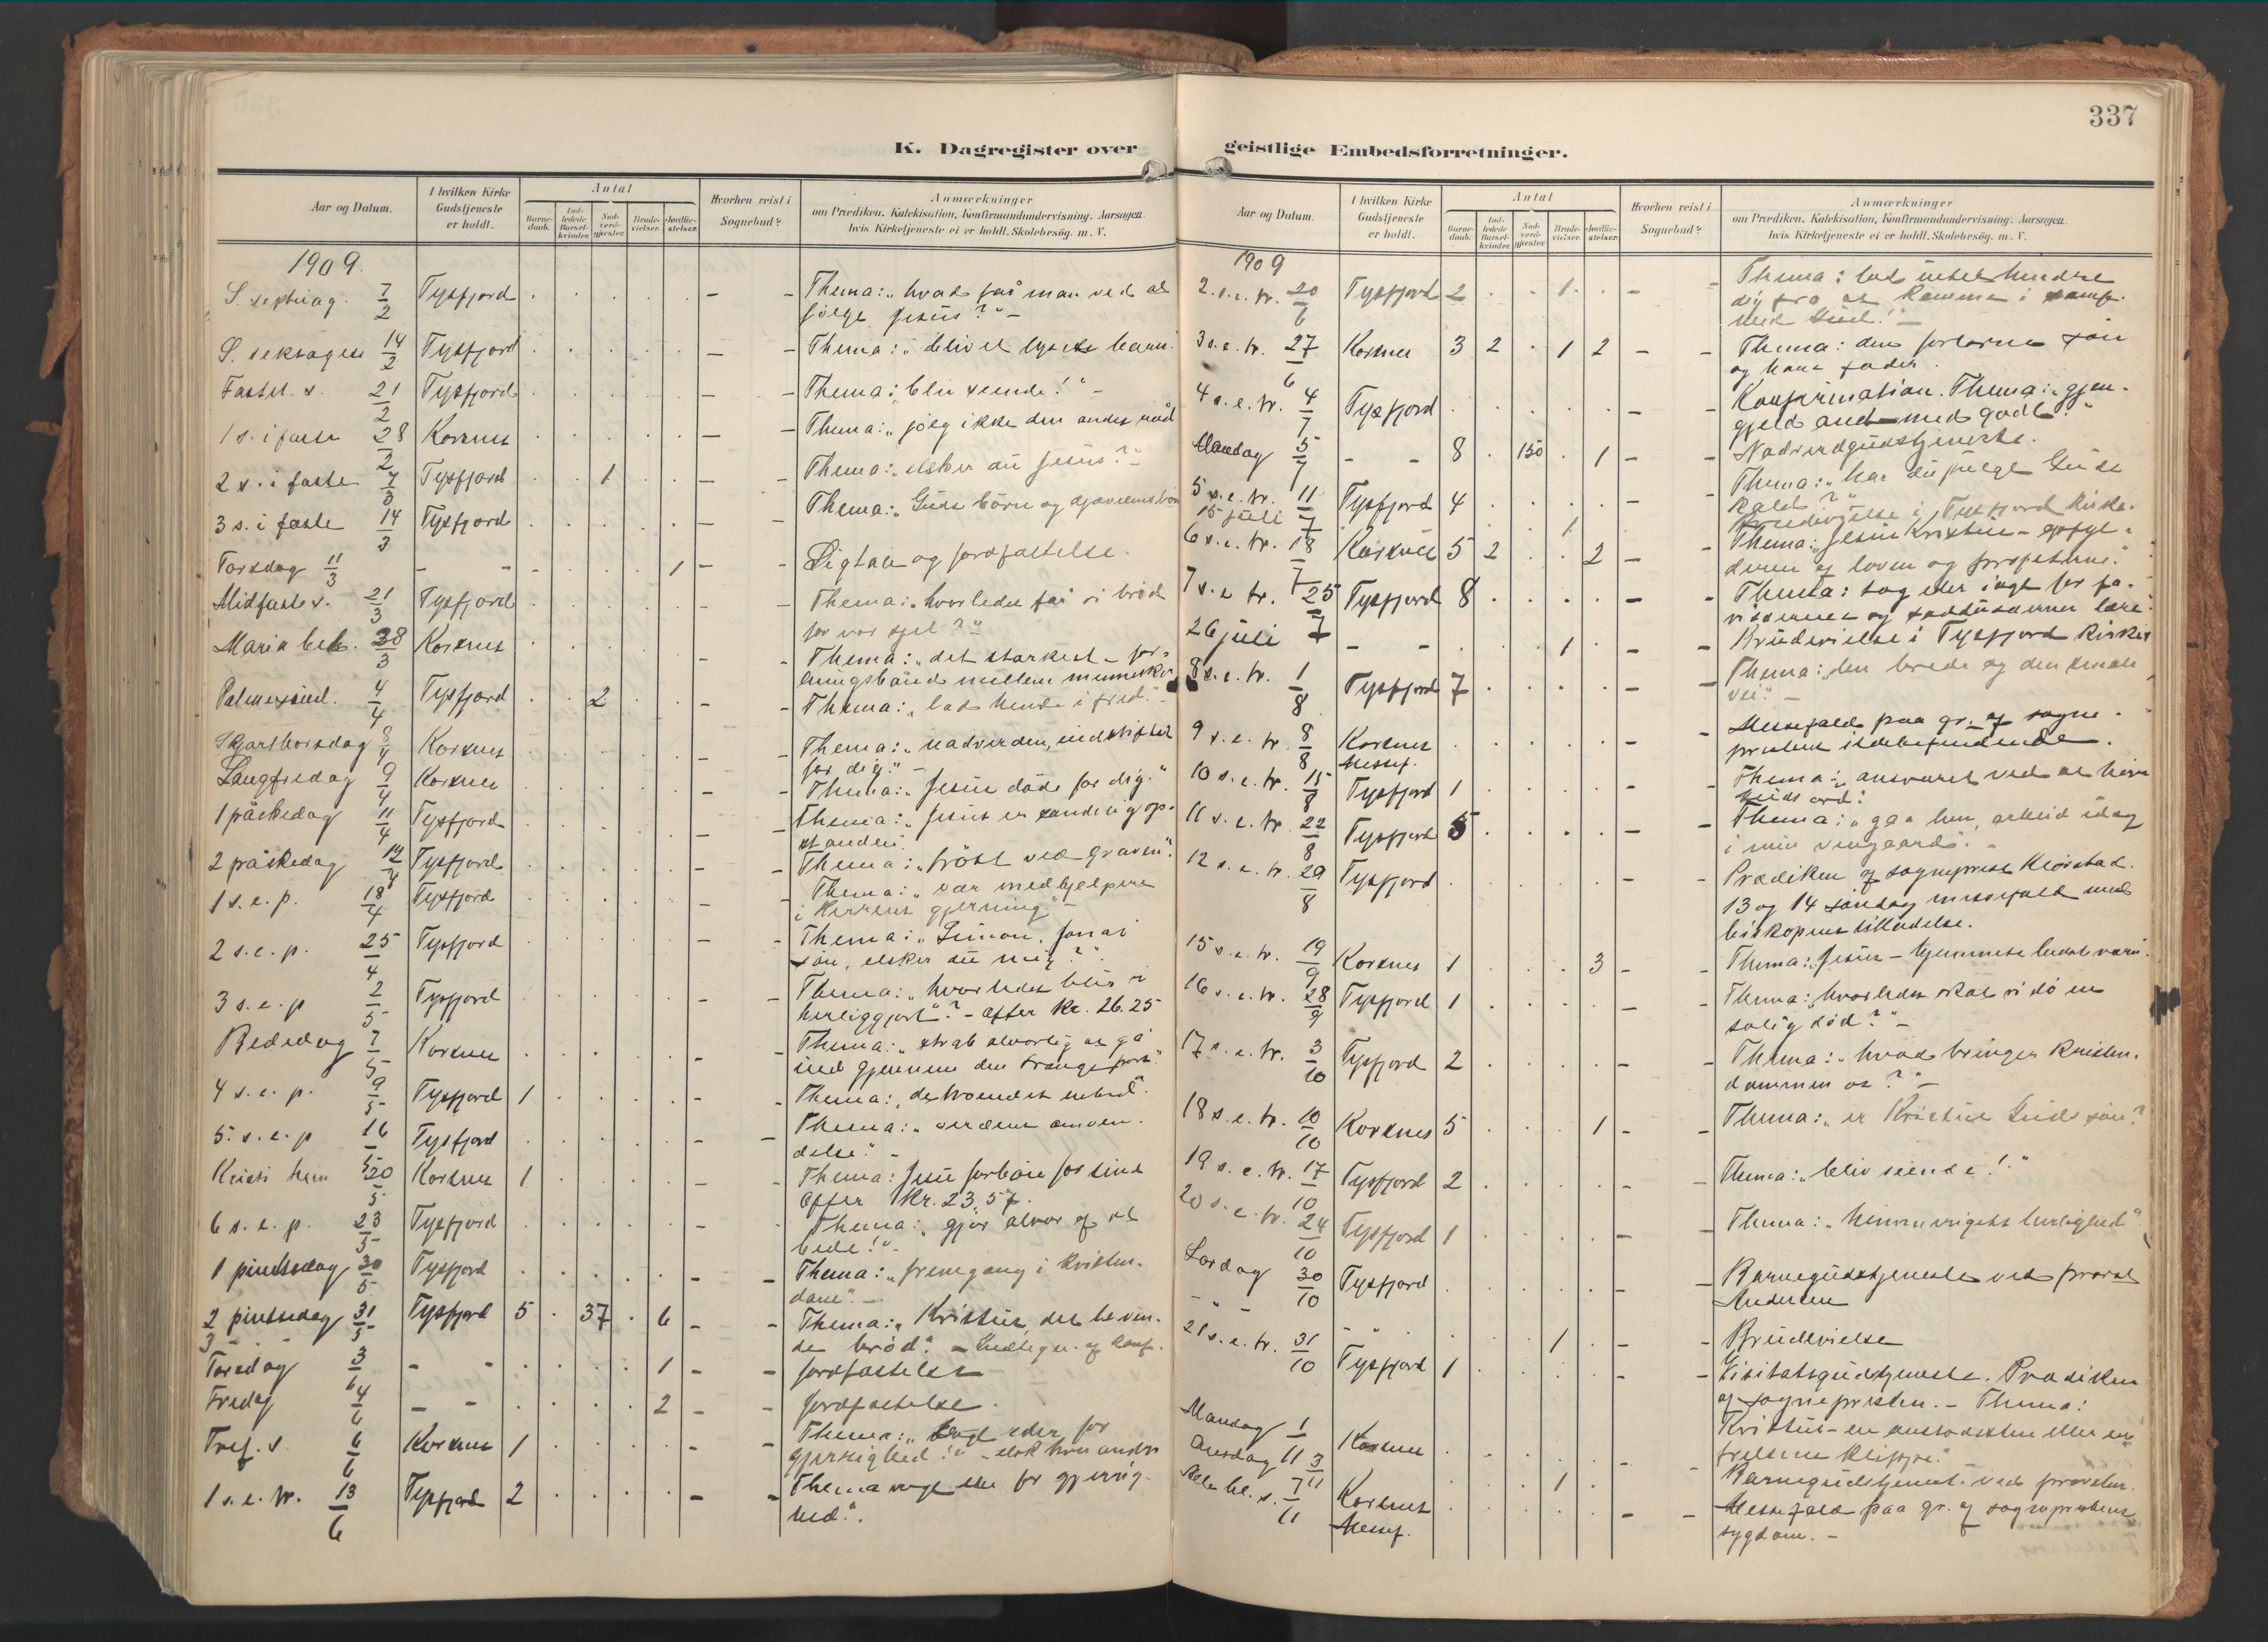 337
K. Dagregister over
Aar og Datum.
I hvilken Kirke Gudstjeneste er holdt.
Antal
Barne-daab.
Ind-ledede Barsel-kvinder.
Nad-verd-gjæster.
Brude-vielser.
Jordfæ-stelser.
Hvorhen reist i Sognebud?
Anmærkninger
om Prædiken, Katekisation, Konfirmandundervisning. Aarsagen
hvis Kirketjeneste ei er holdt, Skolebesög. m. V.
1909.
S. septuag. 7/2 Tysfjord - - Thema: "hvad får man ved at
følge Jesus?" -
S. seksages 14/2 Tysfjord - - Thema: "bliv et lysets barn"
Fastel. s. 21/2 Tysfjord - - Thema: "bliv seende!" -
1 s. i faste 28/2 Korsnes - - Thema: "følg ikke den andes råd
2 s. i faste 7/3 Tysfjord 1 Thema: "elsker du Jesus?"
3 s. i faste 14/3 Tysfjord - - Thema: "Guds børn og djævelens børn
Torsdag 11/3 - - 1 - - Ligtale og jordfæstelse.
Midfastes. 21/3 Tysfjord - - Thema: "hvorledes får vi brød
for vor sjæl?"
Maria beb. 28/3 Korsnes - - Thema: "det stærkest - for-
eningsbånd mellem mennesker
Palmesønd. 4/4 Tysfjord 2 - - Thema: "lad hende i fred." -
Skjærtorsdag 8/4 Korsnes - - Thema: "nadverden, indstiftet
for dig." -
Langfredag 9/4 Korsnes - - Thema: "Jesus døde for dig."
1 påskedag 11/4 Tysfjord - - Thema: "Jesus er sandelig op-
standen.
2 påskedag 12/4 Tysfjord - - Thema: "trøst ved graven".
1 s. e. p. 18/4 Tysfjord - - Thema: "vær medhjelpere
i Herrens gjerning." -
2 s. e. p. 25/4 Tysfjord - - Thema: "Simon, Jonas
søn, elsker du mig?"
3 s. e. p 2/5 Tysfjord - - Thema: "hvorledes blir vi
herliggjort"? - efter Kr. 26.25
Bededag 7/5 Korsnes - - Thema: "stræb alvorlig at gå
ind gjennem den trange port."
4 s. e. p. 9/5 Tysfjord 1 - - Thema: "de troendes enhed".
5. s. e. p 16/5 Tysfjord - - Thema: "verdens omven-
delse." -
Kristi him 20/5 Korsnes 1 - - Thema: Jesu forbøn for sine
efter Kr. 23,57.
6 s. e. p. 23/5 Tysfjord - - Thema: "gjør alvor af at
bede!" -
1 pintsedag 30/5 Tysfjord - - Thema: "fremgang i kristen-
dom". -
2 pintsedag 31/5 Tysfjord 5 37 6 - - Thema: "Kristus, det leven-
de brød".
Torsdag 3/6 - - 1 - - Jordfæstelse
Fredag 4/6 - - 2 - - Jordfæstelse.
Tref. s. 6/6 Korsnes 1 - - Thema: "Vogt eder for
gjerrighed!" - elsk hverandre
1 s. e. tr. 13/6 Tysfjord 2 - - Thema vogt eder for gjerrig-
hed".
geistlige Embedsforretninger.
Aar og Datum.
I hvilken Kirke Gudstjeneste er holdt.
Antal
Barne-daab.
Ind-ledede Barsel-kvinder.
Nad-verd-gjæster.
Brude-vielser.
Jordfæ-stelser.
Hvorhen reist i Sognebud?
Anmærkninger
om Prædiken, Katekisation, Konfirmandundervisning. Aarsagen
hvis Kirketjeneste ei er holdt, Skolebesög. m. V.
1909
2. s. e. tr. 20/6 Tysfjord 2 1 - - Thema: lad intet hindre
dig fra at komme i samf.
med Gud!" -
3 s. e. tr. 27/6 Korsnes 3 2 1 2 - - Thema: den fortorne søn
og hans fader.
4 s. e. tr. 4/7 Tysfjord - - Konfirmation. Thema: "gjen-
gjeld ondt med godt."
Mandag 5/7 - - 8 150 1 - - Nadverdgudstjeneste.
5 s. e. tr. 11/7 Tysfjord 4 Thema: "har du fulgt Guds
kald?"
15 juli 1 Brudevielse i Tysfjord kirke.
6 s. e. tr. 18/7 Korsnes 5 2 2 - - Thema: "Jesus Kristus - opfyl-
deren af loven og profeterne."
7 s. e. tr. 25/7 Tysfjord 8 - - Thema: tag eder iagt for fa-
risæernes og saddusæernes lære.
26 juli - - 1 - - Brudevielse i Tysfjord kirke
8 s. e. tr. 1/8 Tysfjord 7 - - Thema: "den brede og den smale
vei." -
9 s. e. tr. 8/8 Korsnes Messef. - Messefald paa gr. af sogne-
prestens ildebefindende.
10 s. e. tr. 15/8 Tysfjord 1 - - Thema: "ansvaret ved at høre
Guds ord."
11 s. e. tr. 22/8 Tysfjord 5 - - Thema: "gaa hen, arbeid idag
i min vingaard". -
12 s. e. tr. 29/8 Tysfjord - - Prædiken af sogneprest
13 og 14 søndag messefald med
biskopens tilladelse.
15 s. e. tr. 19/9 Korsnes 1 3 - - Thema: "Jesus - hjemmets bedste værn".
16 s. e. tr. 28/9 Tysfjord 1 - - Thema: "hvorledes skal vi dø en
salig død?" -
17 s. e. tr. 3/10 Tysfjord 2 - - Thema: "hvad bringer kristen-
dommen os?" -
18 s. e. tr. 10/10 Korsnes 5 1 - - Thema: "er Kristus Guds søn?
19 s. e. tr. 17/10 Tysfjord 2 - - Thema: "bliv seende!"
20 s. e. tr. 24/10 Tysfjord 1 - - Thema: "himmerigets herlighed"
Lørdag 30/10 Tysfjord - - Barnegudstjeneste ved provst
Andersen
- " - - " - 1 - - Brudevielse
21 s. e. tr. 31/10 Tysfjord 1 - - Visitatsgudstjeneste. Prædiken
af sognepresten. - Thema:
Kristus - en anstødssten eller en
frelsens klippe."
Mandag 1/11 Korsnes - Barnegudstjenest. ved provsten.
Onsdag 3/11 1
Alle hl. s. 7/11 Korsnes Messef. - - Messefald paa gr. af sogneprestens
sygdom. -